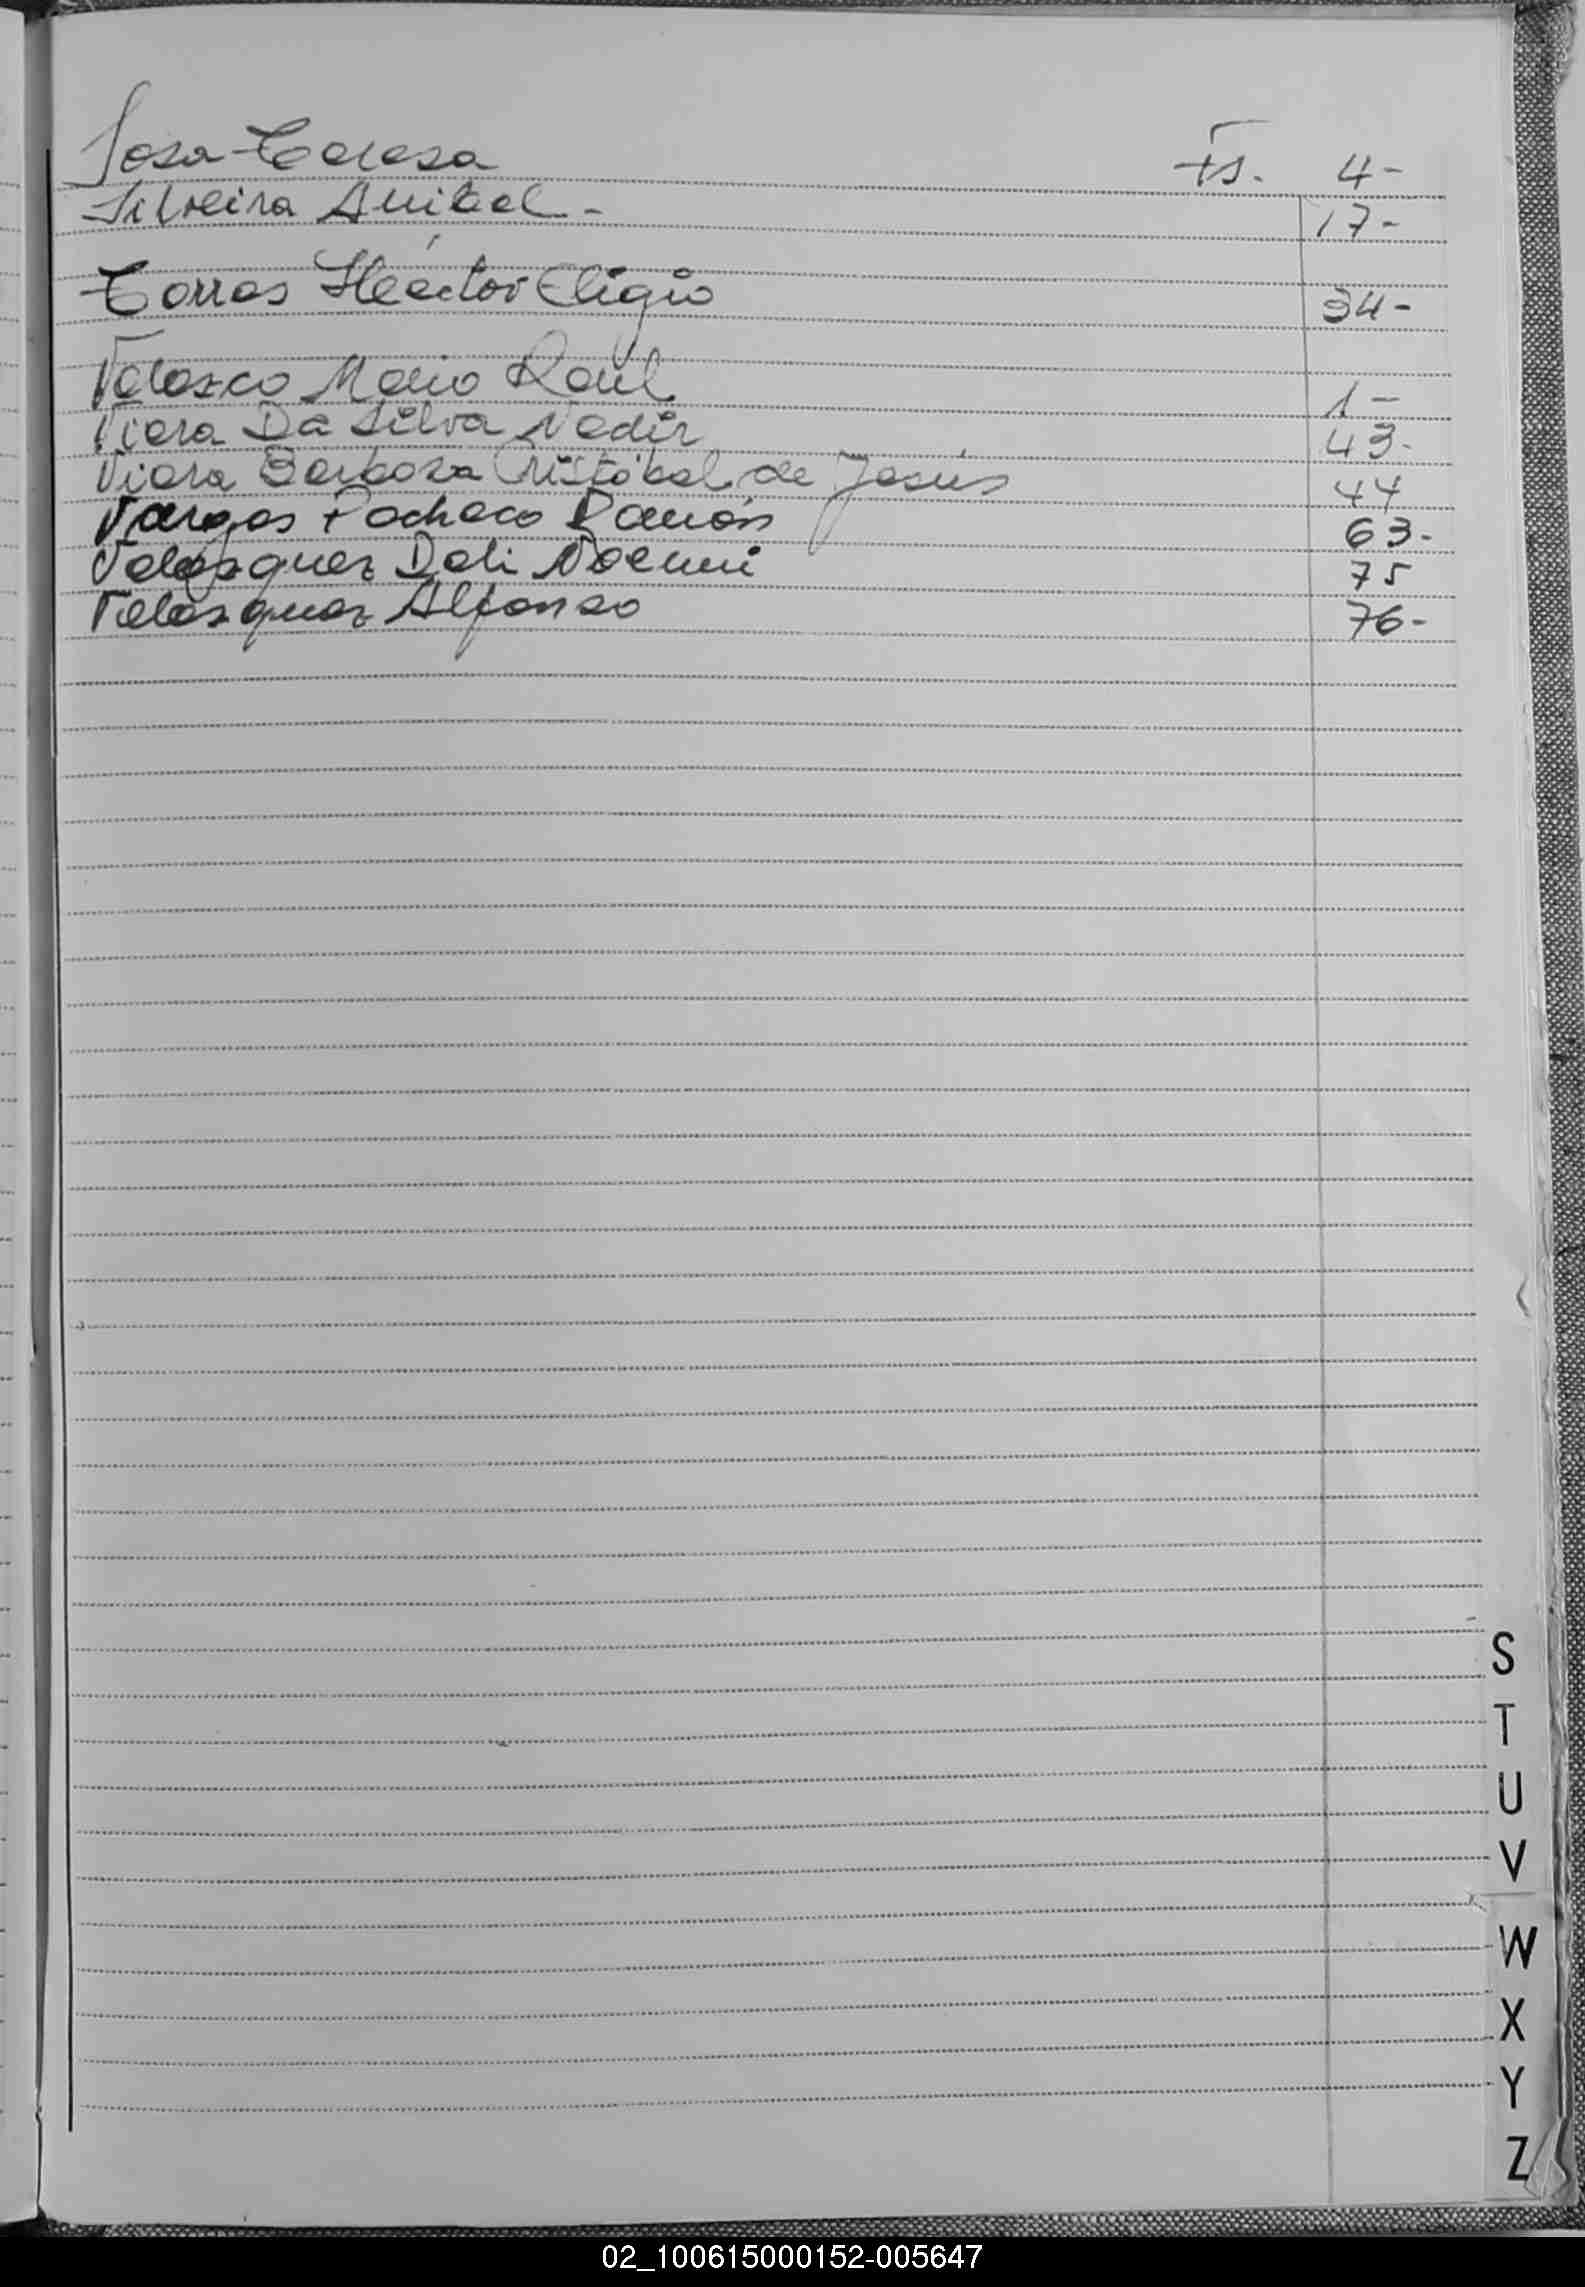 Sosa Teresa Fs. 4-
Silveira Anibal - 17-
Torres Héctor Eligio 34-
Velasco Mario Raúl 1-
Viera Da Silva Nadir 43-
Viera Barboza Cristóbal de Jesús 44
Vargas Pacheco Ramón 63-
Velasquez Doli Noemi 75
Velasquez Alfonso 76-
S
T
U
V
W
X
Y
Z
02_100615000152-005647